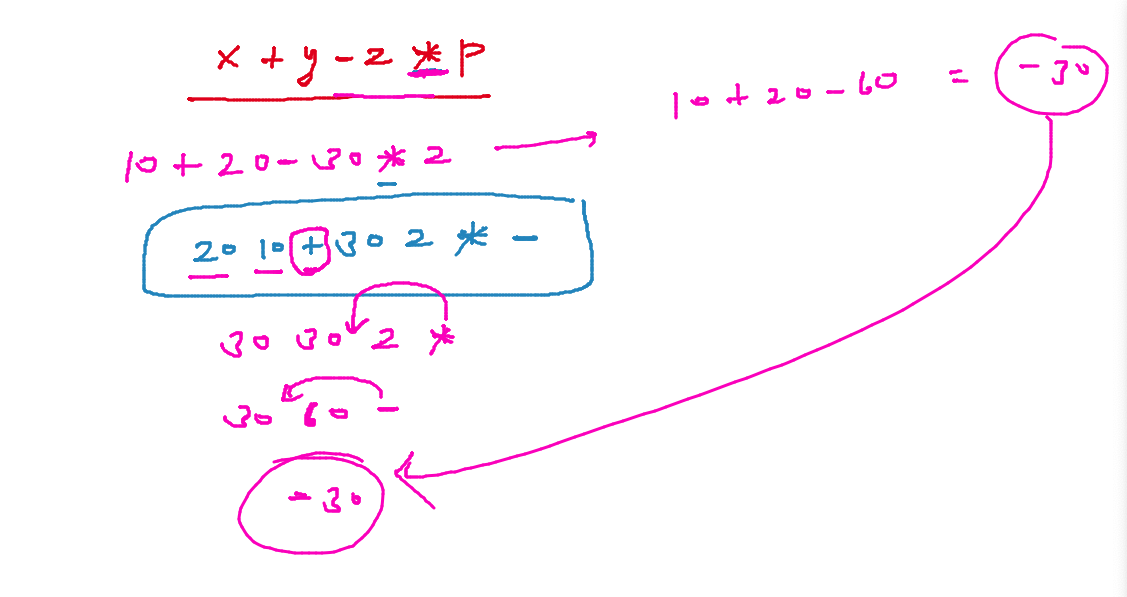 x + y - z * p
10 + 20 - 60 = -30
10 + 20 - 30 * 2
20 10 + 30 2 * -
30 30 2 *
30 60 -
-30